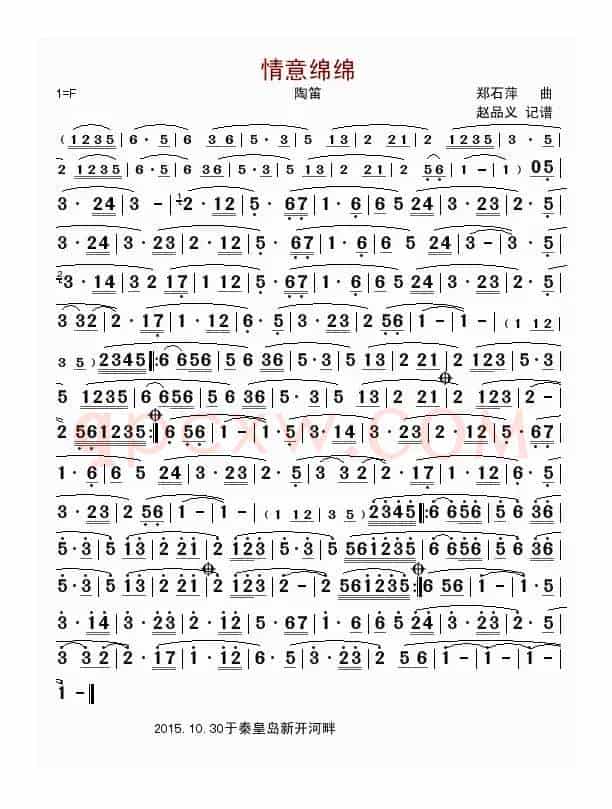 情意绵绵
1=F 陶笛 郑石萍 曲
赵品义 记谱
(1235|6·5|6 36|5·3|5 13|2 21|2 123|5·5|6·5|
2 1235|6·5|6 36|5·3|5 13|2 21|2 56|1-|1-) 05|
3·24|3-|2·12|5·67|1·6|6 5 24|3·23|2·12|5·67|
3·24|3·23|2·12|5·67|1·6|6 5 24|3-|3-|3·5|
3·14|3 2 17|1 12|5·67|1·6|6 5 24|3·23|2·12|5·5|
3 32|2·17|1·12|6·5|3·23|2 56|1-|1-|(1 12
3 5) 2345|:6 656|5 6 36|5·3|5 13|2 21|2 123|5·5|
5 1235|6 656|5 6 36|5·3|5 13|2 21|2 123|2-|
2 561235:|6 56|1-|1·5|3·14|3·23|2·12|5·67|
1·6|6 5 24|3·23|2·5|3 32|2·17|1·12|6·5|
3·23|2 56|1-|1-|(1 12 3 5) 2345|:6 656|5 6 36|
5·3|5 13|2 21|2 123|5·5|5 561235|6 656|5 6 36|
5·3|5 13|2 21|2 123|2-|2 561235:|6 56|1-|1·5|
3·14|3·23|2·12|5·67|1·6|6 5 24|3·23|2·5|
3 32|2·17|1·12|6·5|3·23|2 56|1-|1-|
1-‖
2015.10.30于秦皇岛新开河畔
qpcxw.COM